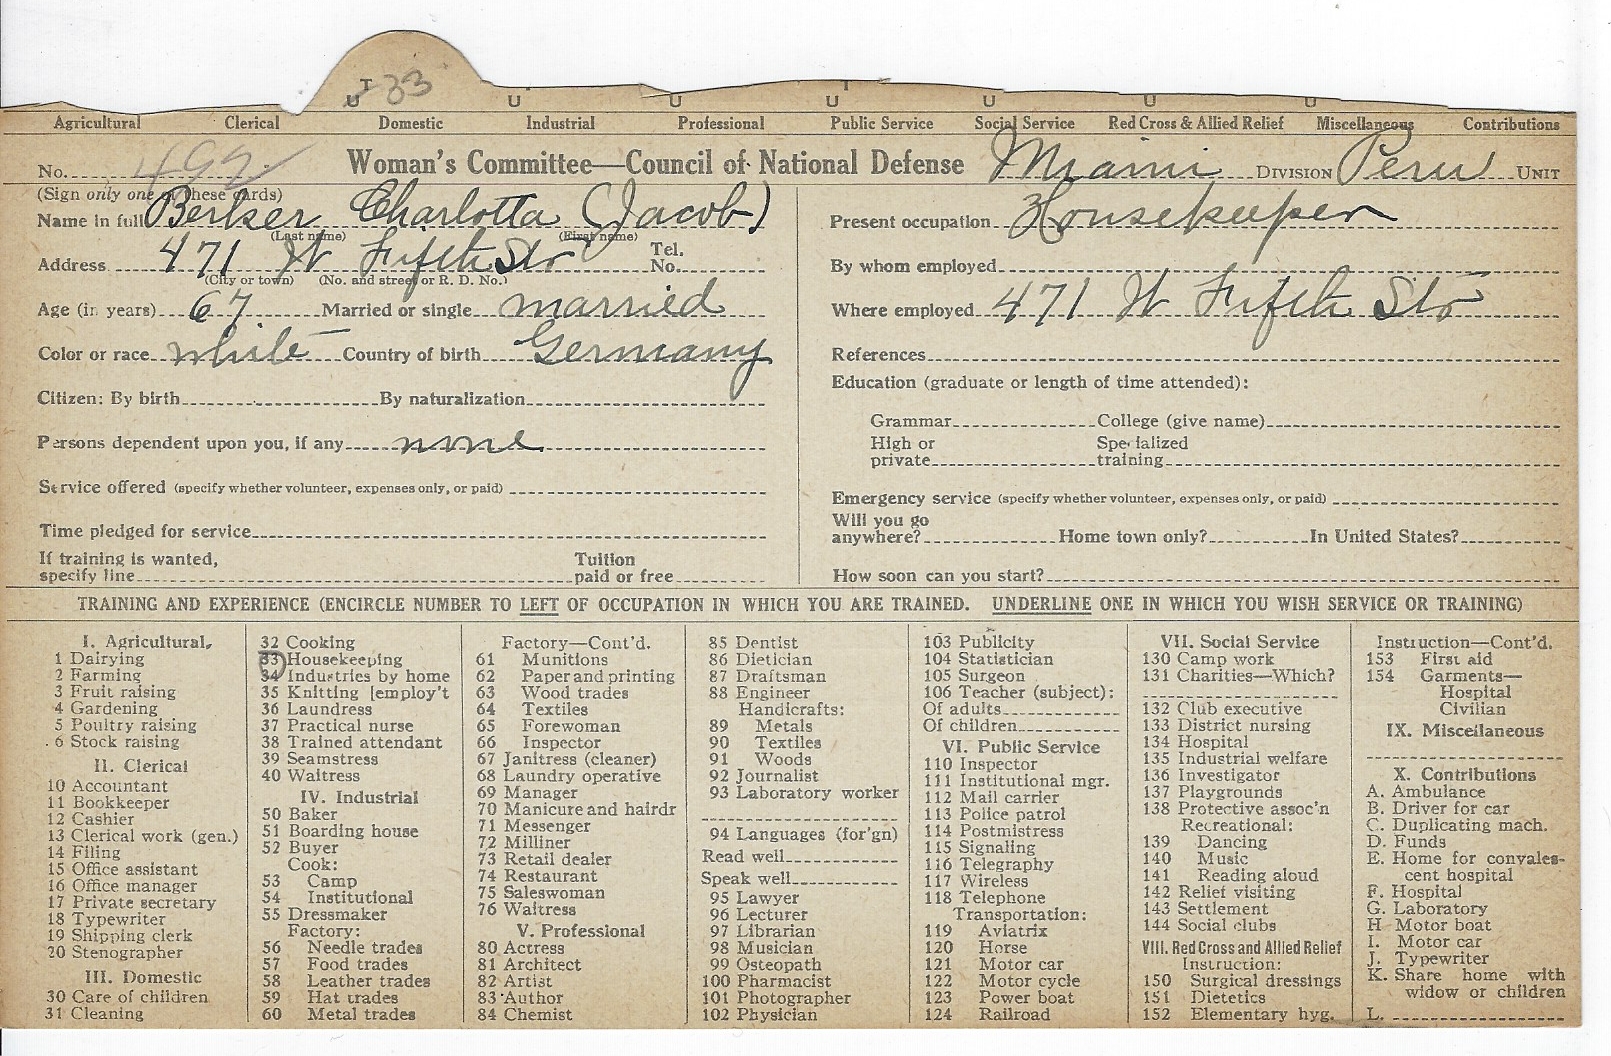 T 33
U U U U U U U
Agricultural Clerical Domestic Industrial Professional Public Service Social Service Red Cross & Allied Relief Miscellaneous Contributions
No. 492 Woman's Committee—Council of National Defense Miami DIVISION Peru UNIT
(Sign only one of these cards)
Name in full Berker Charlotta (Jacob)
(Last name) (First name)
Address 471 W Fifth Str Tel. No.
(City or town) (No. and street or R. D. No.)
Age (in years) 67 Married or single married
Color or race white Country of birth Germany
Citizen: By birth By naturalization
Persons dependent upon you, if any none
Service offered (specify whether volunteer, expenses only, or paid)
Time pledged for service
If training is wanted, specify line Tuition paid or free
Present occupation Housekeeper
By whom employed
Where employed 471 W Fifth Str
References
Education (graduate or length of time attended):
Grammar College (give name)
High or private Specialized training
Emergency service (specify whether volunteer, expenses only, or paid)
Will you go anywhere? Home town only? In United States?
How soon can you start?
TRAINING AND EXPERIENCE (ENCIRCLE NUMBER TO LEFT OF OCCUPATION IN WHICH YOU ARE TRAINED. UNDERLINE ONE IN WHICH YOU WISH SERVICE OR TRAINING)
I. Agricultural
1 Dairying
2 Farming
3 Fruit raising
4 Gardening
5 Poultry raising
6 Stock raising
II. Clerical
10 Accountant
11 Bookkeeper
12 Cashier
13 Clerical work (gen.)
14 Filing
15 Office assistant
16 Office manager
17 Private secretary
18 Typewriter
19 Shipping clerk
20 Stenographer
III. Domestic
30 Care of children
31 Cleaning
32 Cooking
33 Housekeeping
34 Industries by home
35 Knitting [employ't
36 Laundress
37 Practical nurse
38 Trained attendant
39 Seamstress
40 Waitress
IV. Industrial
50 Baker
51 Boarding house
52 Buyer
Cook:
53 Camp
54 Institutional
55 Dressmaker
Factory:
56 Needle trades
57 Food trades
58 Leather trades
59 Hat trades
60 Metal trades
Factory—Cont'd.
61 Munitions
62 Paper and printing
63 Wood trades
64 Textiles
65 Forewoman
66 Inspector
67 Janitress (cleaner)
68 Laundry operative
69 Manager
70 Manicure and hairdr
71 Messenger
72 Milliner
73 Retail dealer
74 Restaurant
75 Saleswoman
76 Waitress
V. Professional
80 Actress
81 Architect
82 Artist
83 Author
84 Chemist
85 Dentist
86 Dietician
87 Draftsman
88 Engineer
Handicrafts:
89 Metals
90 Textiles
91 Woods
92 Journalist
93 Laboratory worker
94 Languages (for'gn)
Read well
Speak well
95 Lawyer
96 Lecturer
97 Librarian
98 Musician
99 Osteopath
100 Pharmacist
101 Photographer
102 Physician
103 Publicity
104 Statistician
105 Surgeon
106 Teacher (subject):
Of adults
Of children
VI. Public Service
110 Inspector
111 Institutional mgr.
112 Mail carrier
113 Police patrol
114 Postmistress
115 Signaling
116 Telegraphy
117 Wireless
118 Telephone
Transportation:
119 Aviatrix
120 Horse
121 Motor car
122 Motor cycle
123 Power boat
124 Railroad
VII. Social Service
130 Camp work
131 Charities—Which?
132 Club executive
133 District nursing
134 Hospital
135 Industrial welfare
136 Investigator
137 Playgrounds
138 Protective assoc'n
Recreational:
139 Dancing
140 Music
141 Reading aloud
142 Relief visiting
143 Settlement
144 Social clubs
VIII. Red Cross and Allied Relief
Instruction:
150 Surgical dressings
151 Dietetics
152 Elementary hyg.
Instruction—Cont'd.
153 First aid
154 Garments—
Hospital
Civilian
IX. Miscellaneous
X. Contributions
A. Ambulance
B. Driver for car
C. Duplicating mach.
D. Funds
E. Home for convales-
cent hospital
F. Hospital
G. Laboratory
H Motor boat
I. Motor car
J. Typewriter
K. Share home with
widow or children
L.